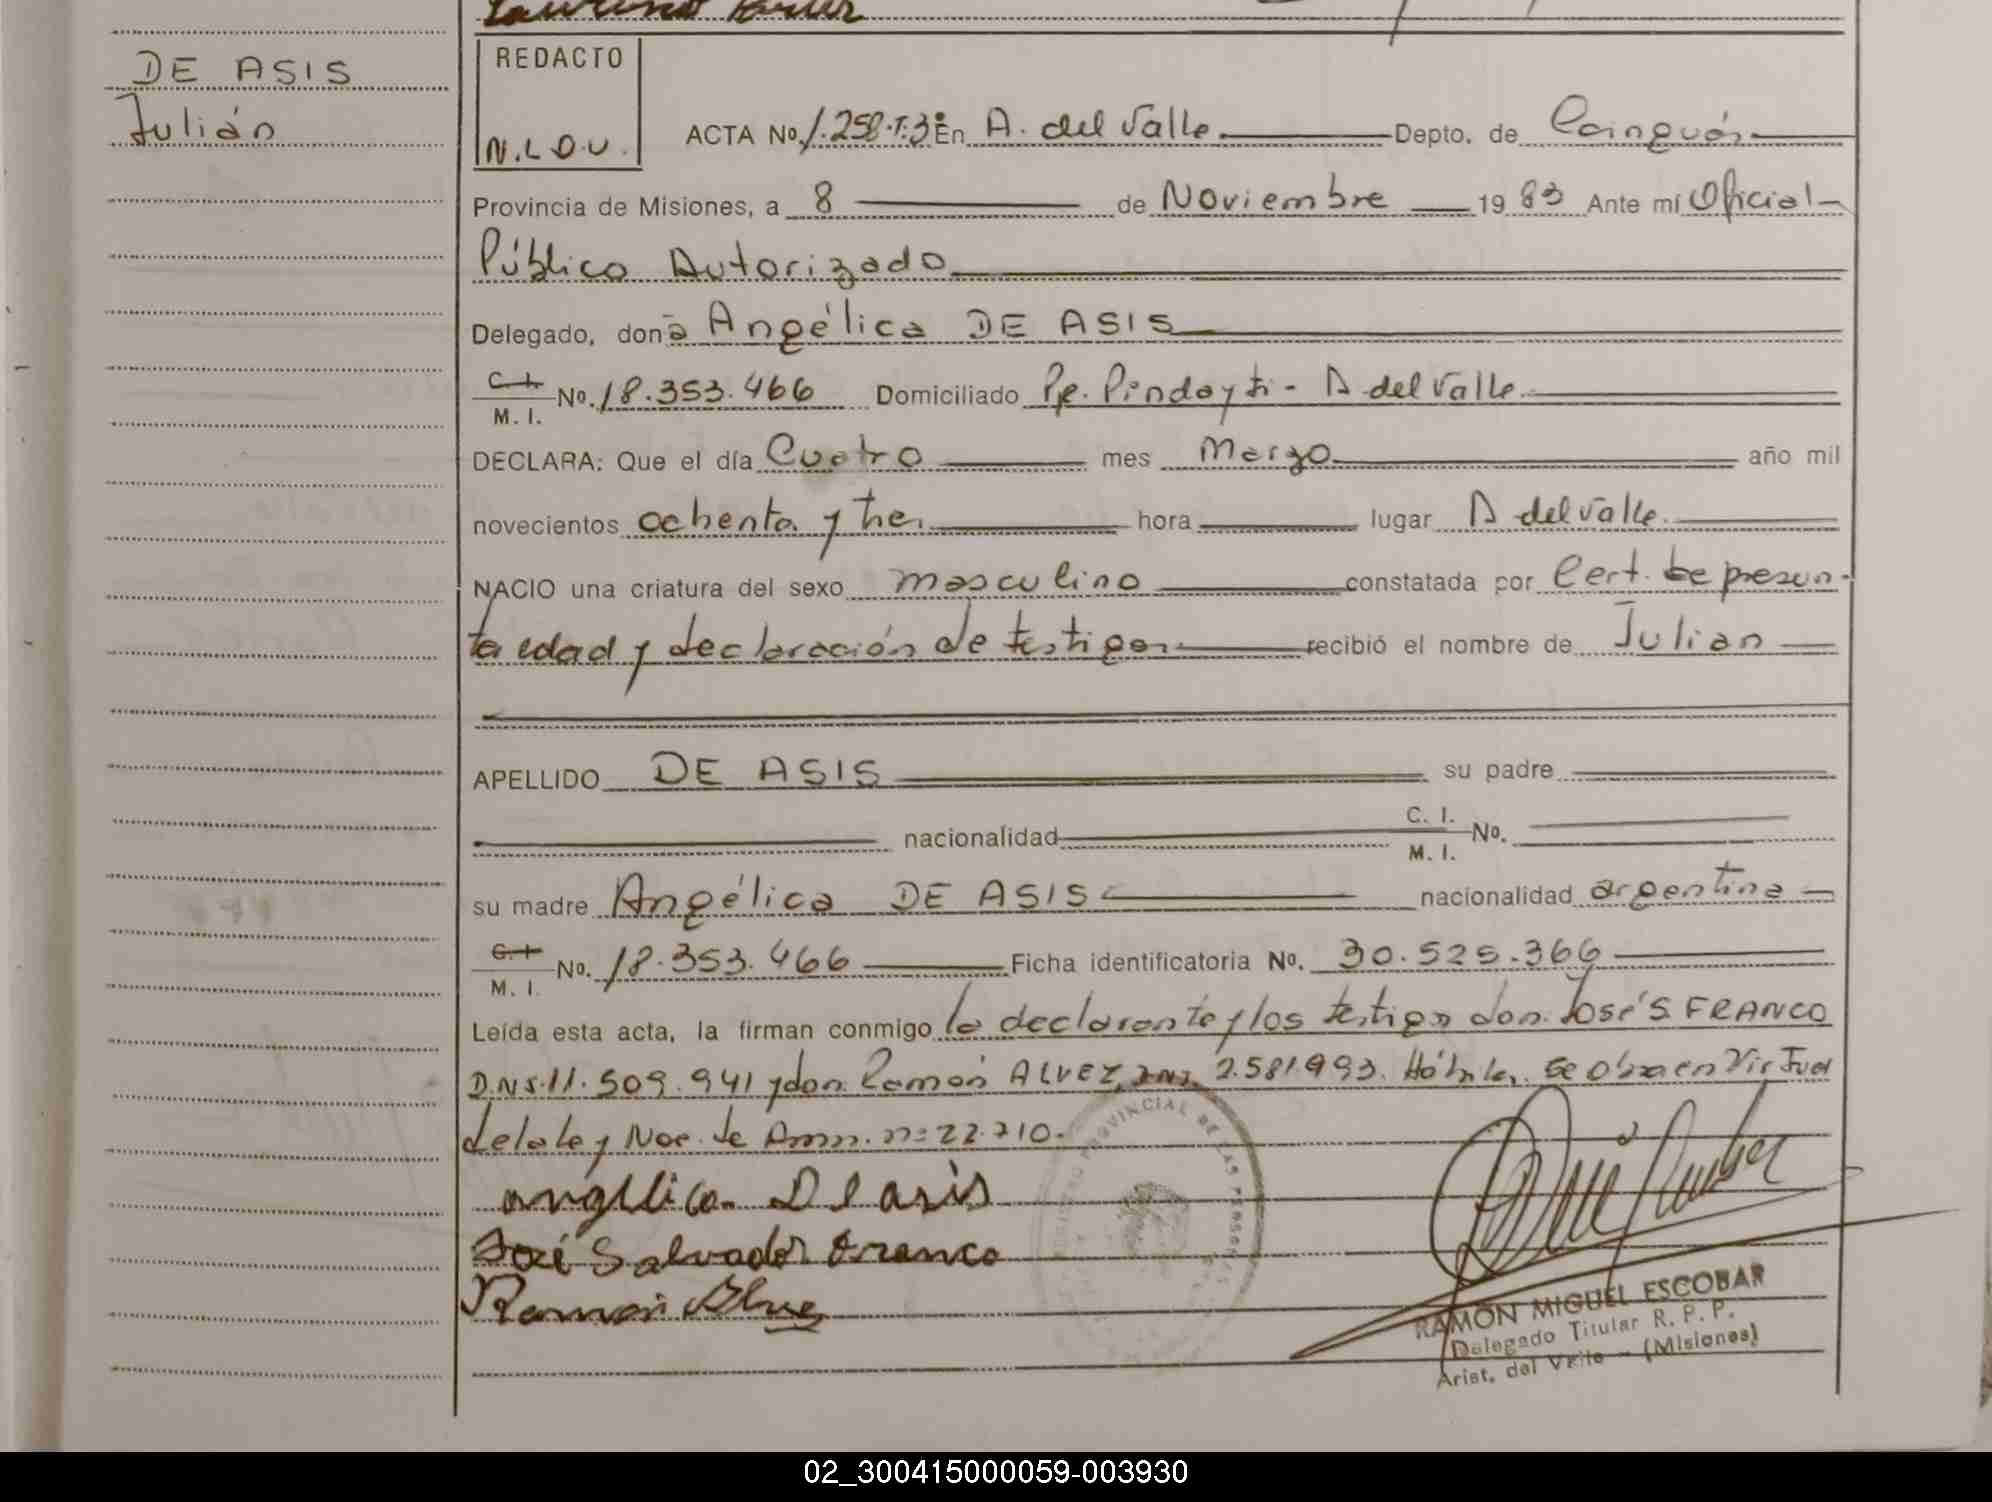 DE ASIS
Julián
REDACTO
N.L.D.U.
ACTA No. 1.258.T.3º En A. del Valle Depto. de Cainguás
Provincia de Misiones, a 8 de Noviembre 1983 Ante mí Oficial
Público Autorizado
Delegado, doña Angélica DE ASIS
C. I. M. I. No. 18.353.466 Domiciliado Pje. Pindayti - A del Valle
DECLARA: Que el día Cuatro mes Marzo año mil
novecientos ochenta y tres hora lugar A del Valle.
NACIO una criatura del sexo masculino constatada por Cert. de presun-
ta edad y declaración de testigos recibió el nombre de Julian
APELLIDO DE ASIS su padre
nacionalidad C. I. M. I. No.
su madre Angélica DE ASIS nacionalidad argentina
C. I. M. I. No. 18.353.466 Ficha identificatoria No. 30.525.366
Leída esta acta, la firman conmigo la declarante y los testigos don José S. FRANCO
D.N.I. 11.509.941 y don Ramón ALVEZ, D.N.I. 2.581.993. Hábiles. Se obra en Virtud
de la ley Nac. de Amn. nº 22.710.
Angelica De asis
José Salvador Franco
Ramon Alvez
REGISTRO PROVINCIAL DE LAS PERSONAS
RAMÓN MIGUEL ESCOBAR
Delegado Titular R. P. P.
Arist. del Valle - (Misiones)
02_300415000059-003930